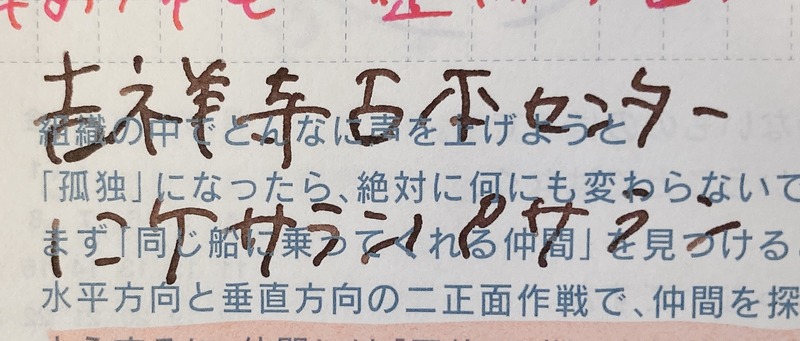 吉祥寺古本センター
組織の中でどんなに声を上げようと
「孤独」になったら、絶対に何にも変わらない
にケサランパサラン
まず「同じ船に乗ってくれる仲間」を見つける
水平方向と垂直方向の二正面作戦で、仲間を探